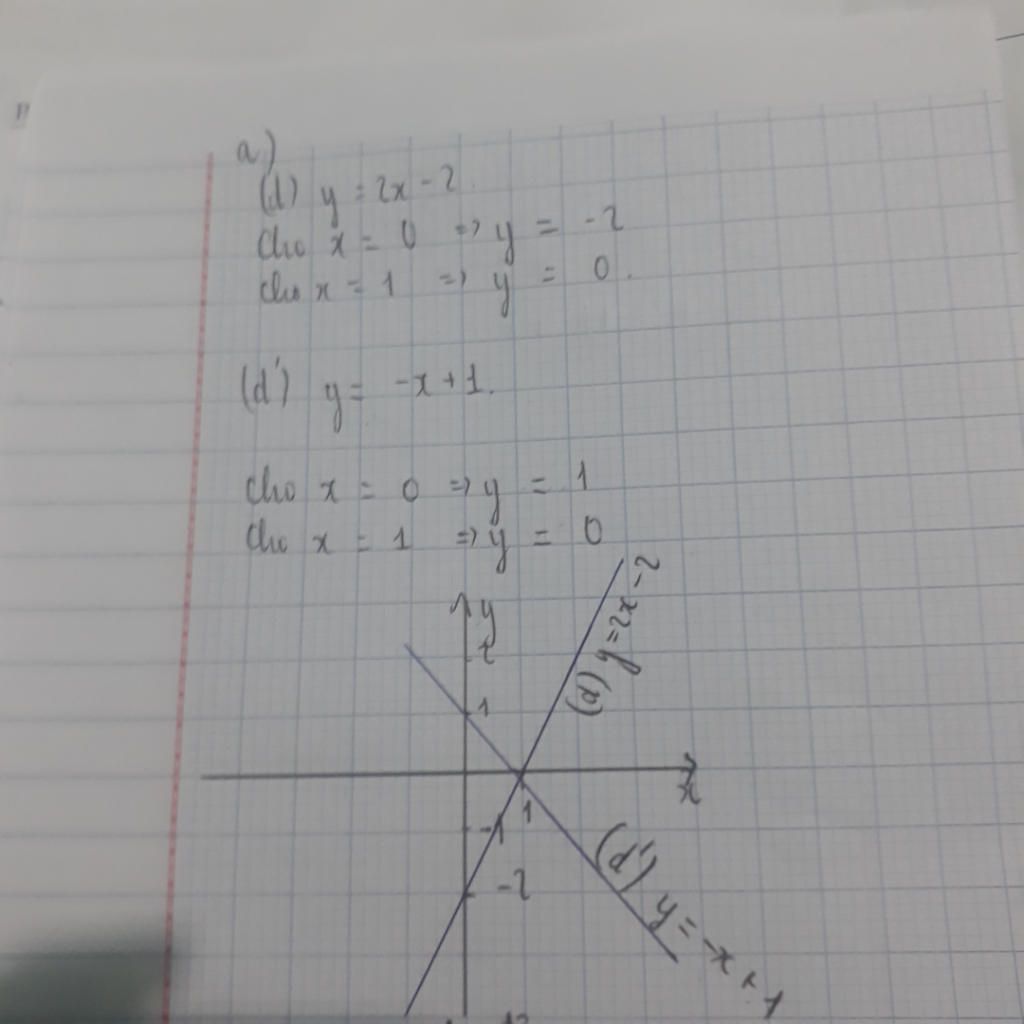 a)
(d) y = 2x - 2
Cho x = 0 => y = -2
Cho x = 1 => y = 0.
(d') y = -x + 1.
Cho x = 0 => y = 1
Cho x = 1 => y = 0
y
2
1
(d) y = 2x - 2
x
1
-1
-2
(d') y = -x + 1